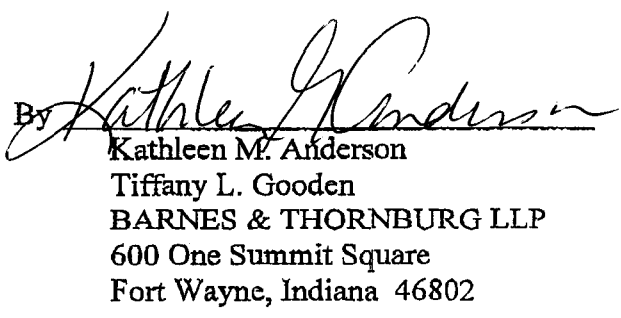 By Kathleen M Anderson
Kathleen M. Anderson
Tiffany L. Gooden
BARNES & THORNBURG LLP
600 One Summit Square
Fort Wayne, Indiana 46802